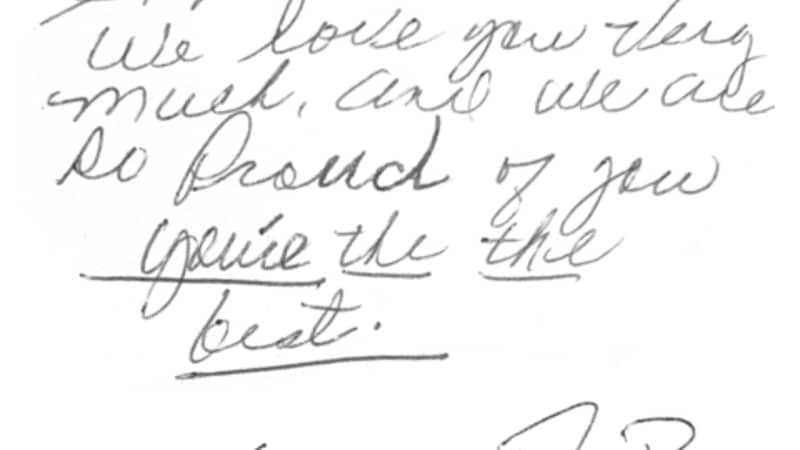 We love you very
much, and we are
so Proud of you
you're the the
best.